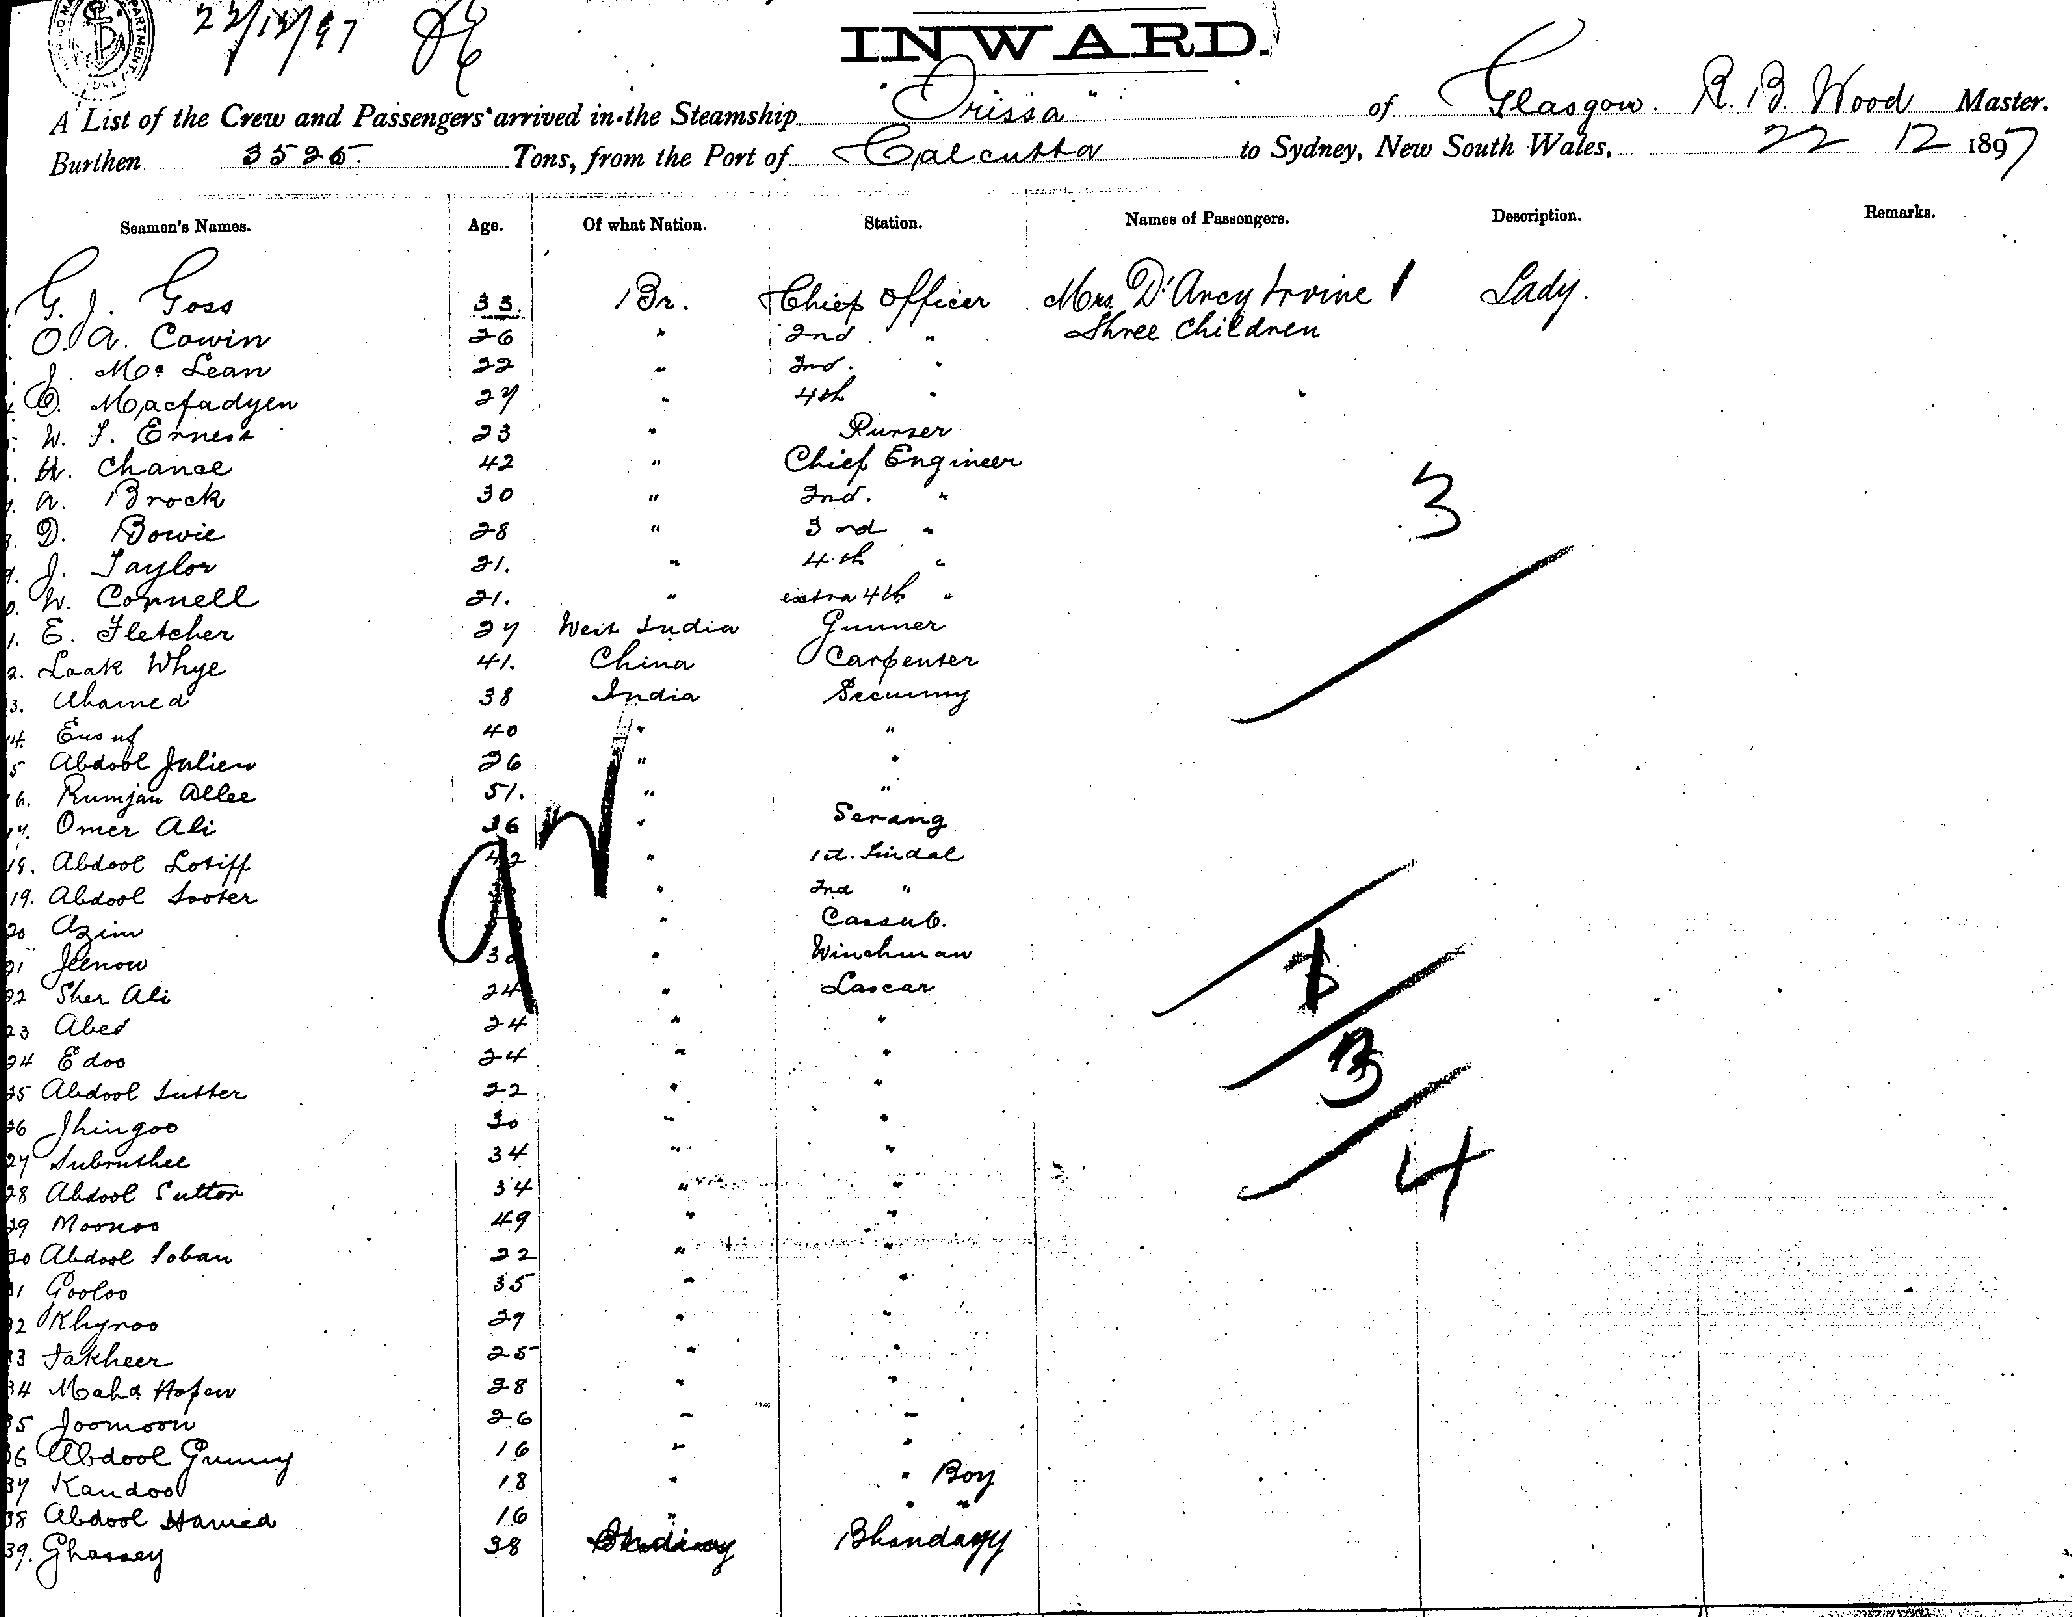 22/12/97
INWARD.
A List of the Crew and Passengers arrived in the Steamship "Orissa" of Glasgow. R. B. Wood Master.
Burthen 3525 Tons, from the Port of Calcutta to Sydney, New South Wales, 22 12 1897
Seamen's Names. Age. Of what Nation. Station. Names of Passengers. Description. Remarks.
G. J. Goss 33. Br. Chief Officer Mrs D'Arcy Irvine 1 Lady.
O. A. Cowin 26 " 2nd " Three Children
J. McLean 22 " 3rd. "
D. Macfadyen 27 " 4th "
W. T. Ernest 23 " Purser
H. Chance 42 " Chief Engineer
A. Brock 30 " 2nd. " 3
D. Bowie 28 " 3rd "
9. J. Taylor 21. " 4th "
W. Connell 21. " extra 4th "
1. E. Fletcher 27 West India Gunner
2. Laak Whye 41. China Carpenter
3. Ahamed 38 India Secunny
14. Eusuf 40 " "
5 Abdool Julien 26 " "
6. Rumjan Allee 51. " "
17. Omer Ali 36 " Serang
18. Abdool Lotiff 42 " 1st. Tindal
19. Abdool Sooter " 2nd "
20 Azim " Cassub.
21 Jeenow " Winchman
22 Sher Ali 24 " Lascar
23 Abed 24 " "
24 Edoo 24 " " 3
25 Abdool Sutter 22 " "
26 Jhingoo 30 " "
27 Subruthee 34 " " 4
28 Abdool Suttor 34 " "
29 Moonoo 49 " "
30 Abdool Soban 22 " "
31 Gooloo 35 " "
32 Khyroo 29 " "
33 Fakheer 25 " "
34 28 " "
35 Joomoon 26 " "
36 Abdool Gunny 16 " "
37 Kandoo 18 " " Boy
38 Abdool Hamied 16 " " "
39. Ghassey 38 Bhandary